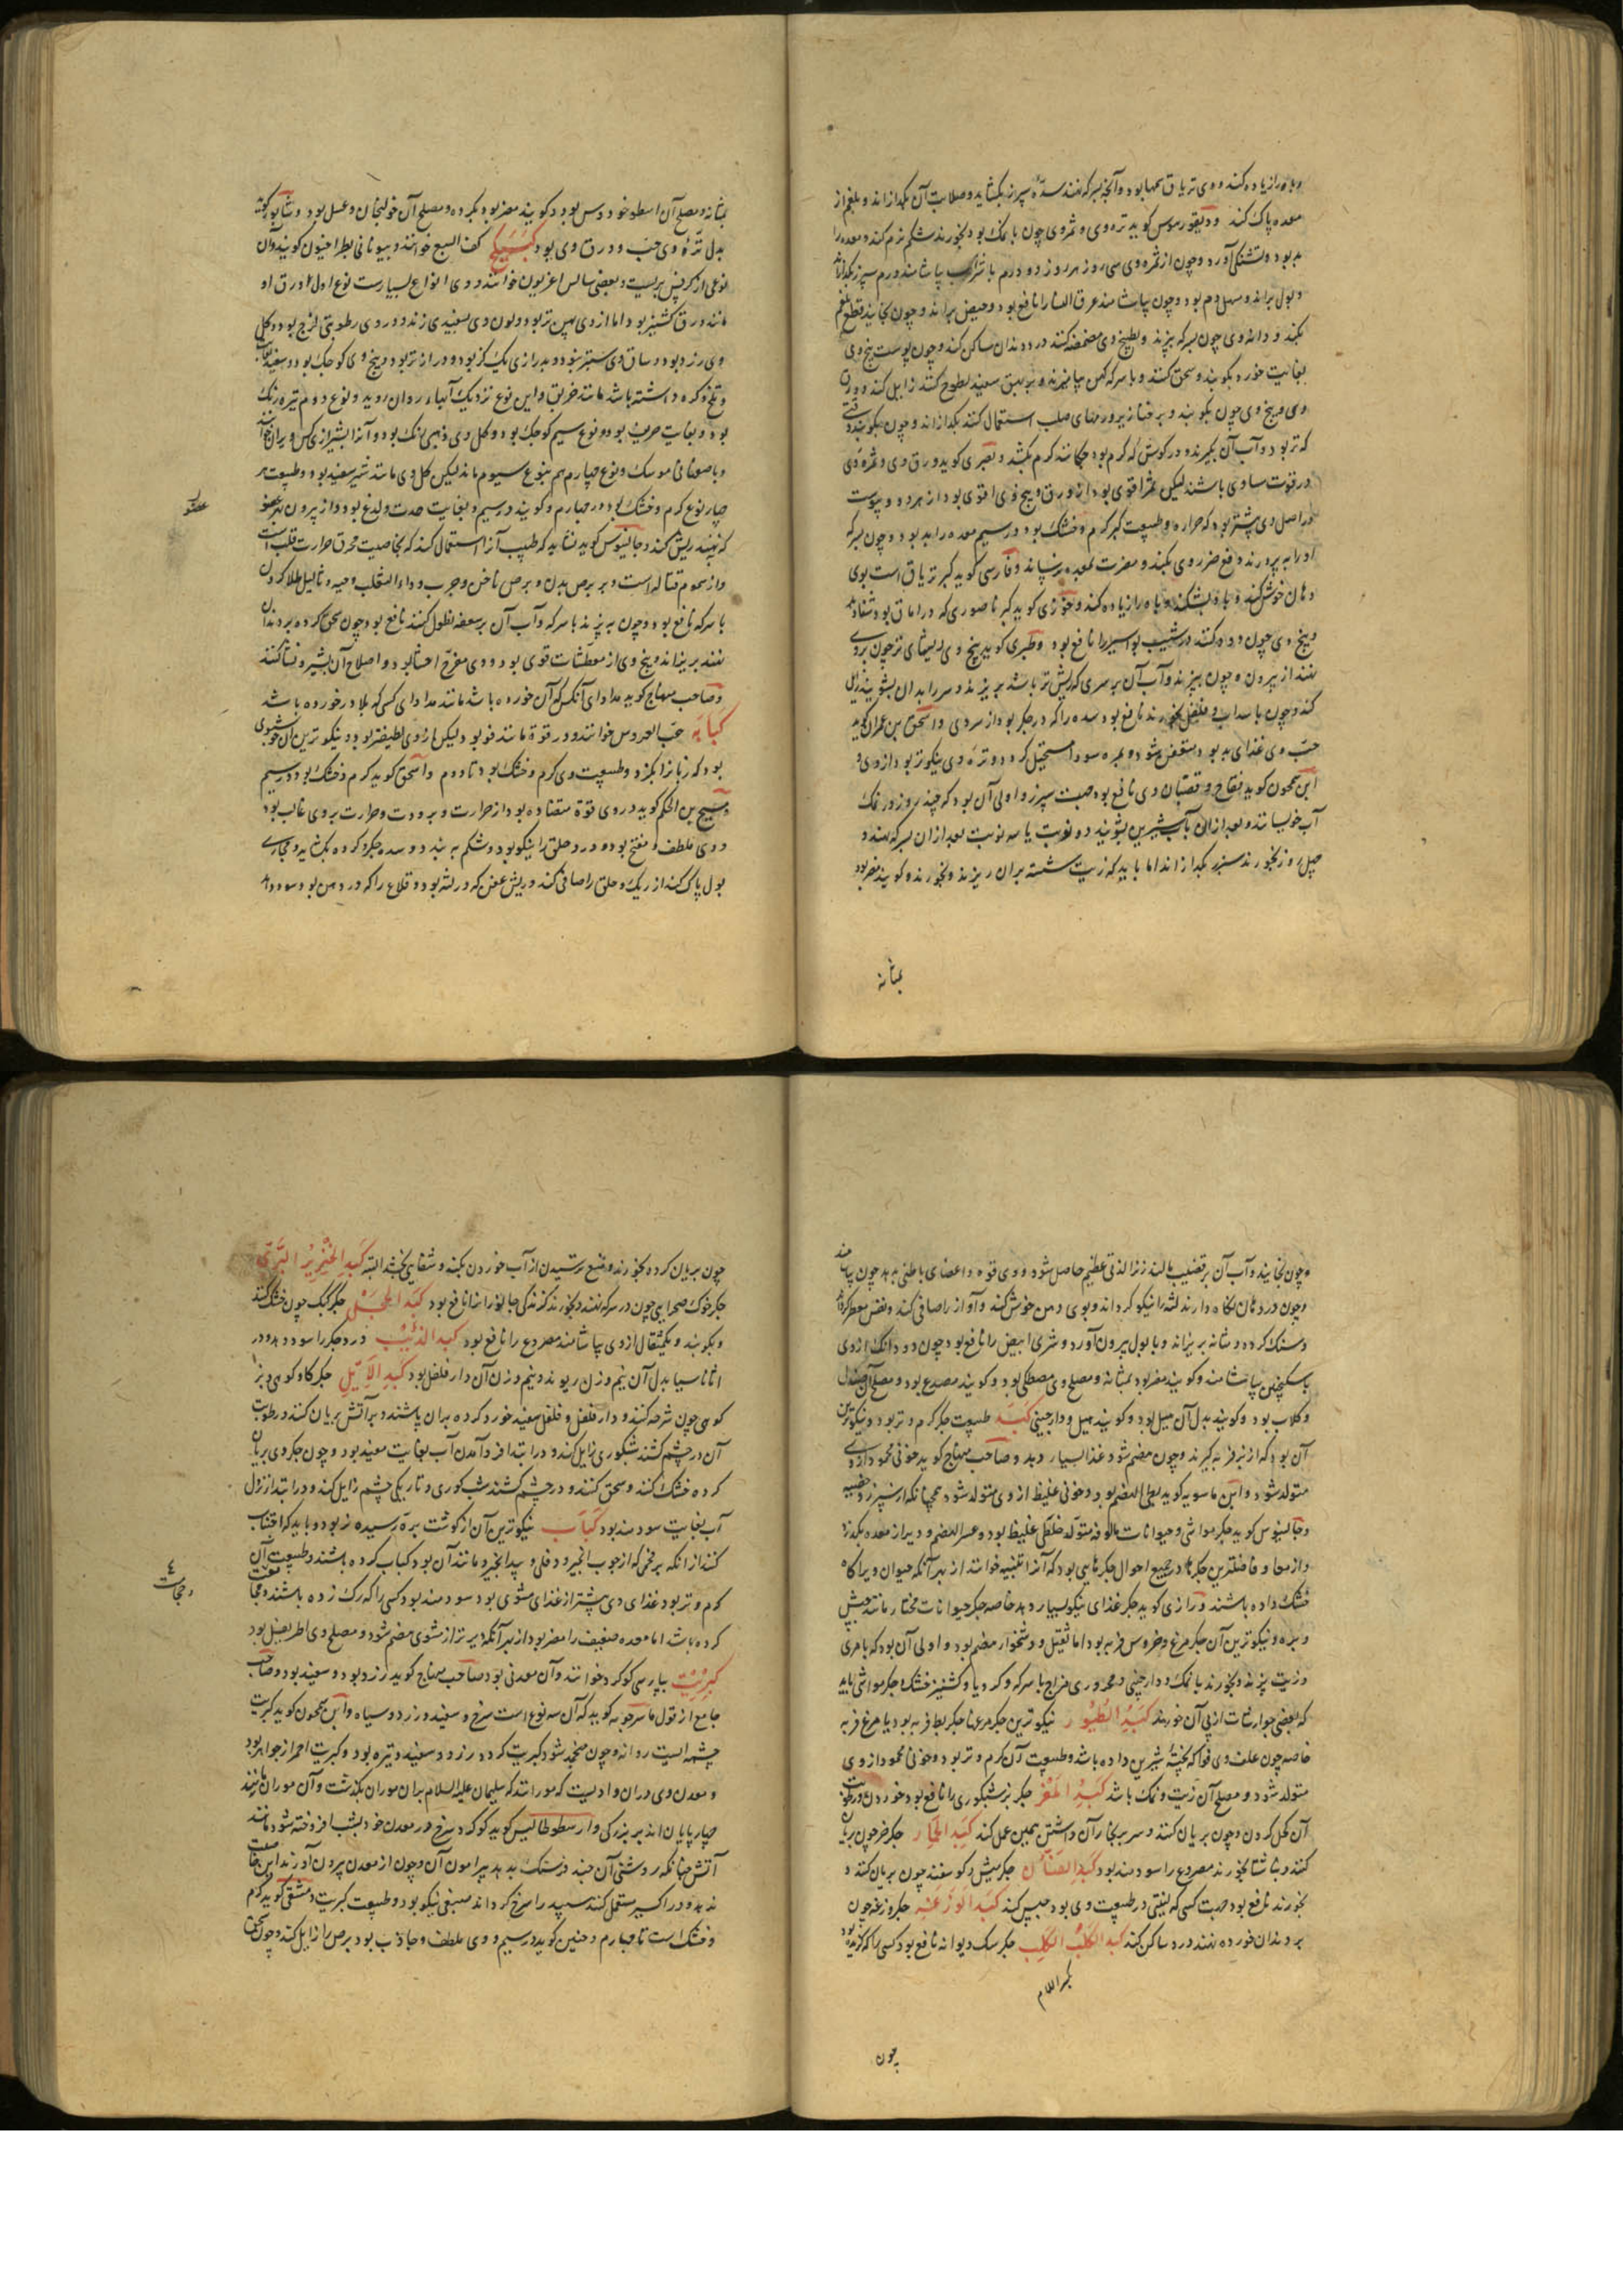 و باه را زیاده کند و وی تریاق سمها بود و آنچه بسرکه نهند سده سپرز بکشاید و صلابت آن بگدازاند و بلغم از
معده پاک کند و دیسقوریدوس گوید تره وی و ثمر وی چون با نمک بود بخورند شکم نرم کند و معده را
بد بود و تشنگی آورد و چون از ثمره وی سی روز هر روز دو درم با شراب بیاشامند ورم سپرز بگدازاند
و بول براند و مسهل دم بود و چون بیاشامند عرق النسا را نافع بود و حیض براند و چون بخایند قطع بلغم
بکند و دانه وی چون بسرکه بپزند و بطبیخ وی مضمضه کنند درد دندان ساکن کند و چون پوست بیخ وی
بغایت خورد بکوبند و سحق کنند و با سرکه کهن بیامیزند و بر بهق سفید لطوخ کنند زایل کند و ورق
وی و بیخ وی چون بکوبند و بر خنازیر و ورمهای صلب استعمال کنند بگدازاند و چون بکوبند وقتی
که تر بود و آب آن بگیرند و در گوش که کرم بود چکانند کرم بکشد و بصری گوید ورق وی و ثمره وی
در قوت مساوی باشند لیکن ثمر اقوی بود از ورق و بیخ وی اقوی بود از هر دو و پوست
در اصل وی بیشتر بود که حراره و طبیعت کبر گرم و خشک بود در سیم معده را بد بود و چون بسرکه
او را بپرورند دفع ضرر وی بکند و مضرت بمعده نرساند و فارسی گوید کبر تریاق است بوی
دهان خوش کند و باد بشکند و باه را زیاده کند و خوزی گوید کبر ناصوری که در اماق بود شفا دهد
و بیخ وی چون دود کنند در شیب بواسیر را نافع بود و طبری گوید بیخ وی ریشهای تر چون بر وی
نهند از بیرون و چون بپزند و آب آن بر سری که ریش تر باشد بریزند و سر را بدان بشویند زایل
کند و چون با سداب و فلفل بخورند نافع بود سده را که در جگر بود از سردی و اسحق بن عمران گوید
حب وی غذای بد بود و متعفن شود و بمره سودا مستحیل گردد و تره وی نیکوتر بود از وی و
ابن سمحون گوید فقاح و قضبان وی نافع بود جهت سپرز و اولی آن بود که چند روز در نمک
آب خویسانند و بعد از آن بآب شیرین بشویند دو نوبت یا سه نوبت بعد از آن بسرکه نهند و
چهل روز بخورند سپرز بگدازاند اما باید که زیت شسته بران ریزند و بخورند و گویند مضر بود
بمثانه
بمثانه و مصلح آن اسطوخودوس بود و گویند مضر بود بگرده و مصلح آن خولنجان و عسل بود و شاپور گوید
بدل تره وی حب و ورق وی بود کبیکج کف السبع خوانند و بیونانی بطراخیون گویند و آن
نوعی از کرفس بریست و بعضی سالس اغریون خوانند و وی انواع بسیارست نوع اول ورق او
مانند ورق گشنیز بود اما از وی پهن‌تر بود و لون وی بسفیدی زند و در وی رطوبتی لزج بود و گل
وی زرد بود و ساق وی ستبر نبود و بدرازی یک گز بود و درازتر بود و بیخ وی کوچک بود و سفید بغایت
و تلخ و گره داشته باشد مانند خربق و این نوع نزدیک آبهاء روان روید و نوع دوم تیره رنگ
بود و بغایت حریف بود و نوع سیم کوچک بود و گل وی ذهبی رنگ بود و آنرا بشیرازی کس ویران خوانند
و باصفهانی موسک و نوع چهارم هم بنوع سیوم ماند لیکن گل وی مانند شیر سفید بود و طبیعت هر
چهار نوع گرم و خشک بود در چهارم و گویند در سیم و بغایت حدت و لدغ بود و از بیرون بهر عضو
عضوی
که نهند ریش کند و جالینوس گوید نشاید که طبیب آنرا استعمال کند که بخاصیت محرق حرارت قلب است
و از سموم قتاله است و بر برص بدن و برص ناخن و جرب و داء الثعلب و حیه و ثالیل طلا کردن
با سرکه نافع بود و چون بپزند با سرکه و آب آن بر سعفه نطول کنند نافع بود و چون سحق کرده بر دندان
نهند بریزاند و بیخ وی از معطشات قوی بود و وی مقرح احشا بود و اصلاح آن بشیر و نشا کنند
و صاحب منهاج گوید مداوای آنکس که آن خورده باشد مانند مداوای کسی که بلادر خورده باشد
کبابه حب العروس خوانند و در قوة مانند فو بود و لیکن از وی لطیف‌تر بود و نیکوترین آن خوشبوی
بود که زبان را بگزد و طبیعت وی گرم و خشک بود تا دوم و اسحق گوید گرم و خشک بود در سیم
مسیح بن الحکم گوید در وی قوة متضاده بود از حرارت و برودت و حرارت بر وی غالب بود
و وی ملطف و مفتح بود و درد حلق را نیکو بود و شکم ببندد و سده جگر و گرده بکشاید و مجاری
بول پاک کند از ریگ و حلق را صافی کند و ریش عفن که در لثه بود و قلاع را که در دهن بود سود دهد
و چون بخایند و آب آن بر قضیب مالند زن را لذتی عظیم حاصل شود و وی قوه و اعضای باطنی بدهد چون بیاشامند
و چون در دهان نگاه دارند لثه را نیکو گرداند و بوی دهن خوش کند و آواز را صافی کند و نفس معطر گرداند
و سنگ گرده و مثانه بریزاند و با بول بیرون آورد و شری ابیض را نافع بود چون دو دانگ از وی
با سکنجبین بیاشامند و گویند مضر بود بمثانه و مصلح وی مصطکی بود و گویند مصدع بود و مصلح آن صندل
و گلاب بود و گویند بدل آن هیل بود و گویند هیل و دارچینی کبد طبیعت جگر گرم و تر بود و نیکوترین
آن بود که از بز فربه گیرند و چون هضم شود غذا بسیار دهد و صاحب منهاج گوید خونی محمود از وی
متولد شود و ابن ماسویه گوید بطی الهضم بود و خونی غلیظ از وی متولد شود همچنانکه از سپرز و خصیه
و جالینوس گوید جگر مواشی و حیوانات مالوفه متولد خلطی غلیظ بود و عسر الهضم و دیر از معده بگذرد
و از معا و فاضلترین جگرها در جمیع احوال جگرهایی بود که آنرا تینیه خوانند از بهر آنکه حیوان ویرا گاه
خشک داده باشند و رازی گوید جگر غذای نیکو بسیار دهد خاصه جگر حیوانات مختار مانند میش
و بره و نیکوترین آن جگر مرغ و خروس فربه بود اما ثقیل و دشخوار هضم بود و اولی آن بود که با مری
و زیت پزند و بخورند یا نمک و دارچینی و محروری مزاج با سرکه و کرویا و کشنیز خشک و جگر مواشی باید
که بعضی جوارشات از پی آن خورند کبد الطیور نیکوترین جگر مرغها جگر بط فربه بود یا مرغ فربه
خاصه چون علف وی فواکه پخته شیرین داده باشد و طبیعت آن گرم و تر بود و خونی محمود از وی
متولد شود و مصلح آن زیت و نمک باشد کبد المعز جگر بز شبکوری را نافع بود خوردن و رطوبت
آن کحل کردن و چون بریان کنند و سر بر بخار آن داشتن همین عمل کند کبد الحمار جگر خر چون بریان
کنند و ناشتا بخورند مصروع را سودمند بود کبد الضان جگر میش و گوسفند چون بریان کنند و
بخورند نافع بود جهت کسی که لینتی در طبیعت وی بود حبس کند کبد الوزغه جگر وزغه چون
بر دندان خورده نهند درد ساکن کند کبد الکلب الکلب جگر سگ دیوانه نافع بود کسی را که گزیده بود
چون
چون بریان کرده بخورند و منع ترسیدن از آب خوردن بکند و شفای بخشد البته کبد الخنزیر البری
جگر خوک صحرایی چون در سرکه نهند و بخورند گزندگی جانوران را نافع بود کبد الحجل جگر کبک چون خشک کنند
و بکوبند و یکمثقال از وی بیاشامند مصروع را نافع بود کبد الذئب درد جگر را سود دهد و در
اثاناسیا بدل آن نیم وزن ریوند و نیم وزن آن دارفلفل بود کبد الایل جگر گاو کوهی و بز
کوهی چون شرحه کنند و دارفلفل و فلفل سفید خورد کرده بران پاشند و بر آتش بریان کنند و رطوبت
آن در چشم کشند شبکوری زایل کند و در ابتدا فرود آمدن آب بغایت مفید بود و چون جگر وی بریان
کرده خشک کنند و سحق کنند و در چشم کشند شب‌کوری و تاریکی چشم زایل کند و در ابتدا نزول
آب بغایت سودمند بود کباب نیکوترین آن از گوشت بره رسیده نر بود و باید که اجتناب
کنند از آنکه بر فحمی که از چوب انجیر و دفلی و بید انجیر و مانند آن بود کباب کرده باشند و طبیعت آن
گرم و تر بود غذای وی بیشتر از غذای مشوی بود سودمند بود کسی را که رگ زده باشند و حجامت
و حجامت
کرده باشد اما معده ضعیف را مضر بود از بهر آنکه دیرتر از مشوی هضم شود و مصلح وی اطریفل بود
کبریت بپارسی گوگرد خوانند و آن معدنی بود صاحب منهاج گوید زرد بود و سفید بود و صاحب
جامع از قول ماسرجویه گوید که آن سه نوع است سرخ و سفید و زرد و سیاه و ابن سمحون گوید کبریت
چشمه ایست روانه و چون منجمد شود کبریت گردد زرد و سفید و تیره بود و کبریت احمر از جواهر بود
و معدن وی در آن وادیست که مورانند که سلیمان علیه السلام بران موران بگذشت و آن موران مانند
چهارپایان اند بر بزرگی و ارسطوطالیس گوید گوگرد سرخ در معدن خود بشب افروخته شود مانند
آتش چنانکه روشنی آن چند فرسنگ بدهد پیرامون آن و چون از معدن بیرون آورند این خاصیت
ندهد و در اکسیر مستعمل کنند سپید را سرخ گرداند صبغی نیکو بود و طبیعت کبریت دمشقی گوید گرم
و خشک است تا چهارم و حنین گوید در سیم و وی ملطف و جاذب بود برص را زایل کند و چون سحق